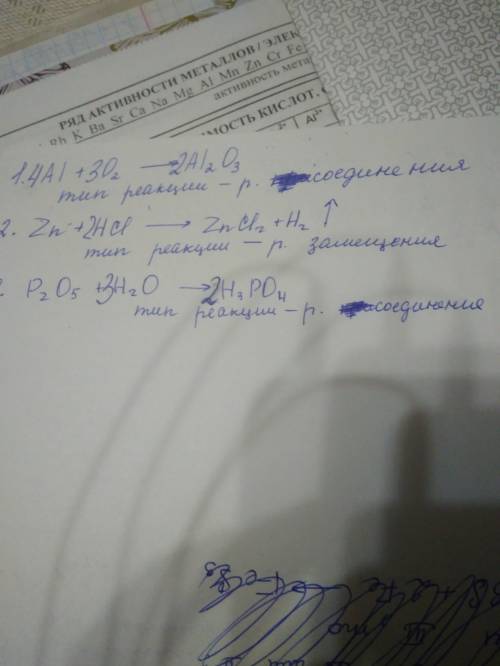 РЯД АКТИВНОСТИ МЕТАЛЛОВ / ЭЛЕК
Rb K Ba Sr Ca Na Mg Al Mn Zn Cr Fe
активность мета
МОСТЬ КИСЛОТ, О
Al³⁺
1. 4Al + 3O₂ → 2Al₂O₃
тип реакции – р. соединения
2. Zn + 2HCl → ZnCl₂ + H₂ ↑
тип реакции – р. замещения
P₂O₅ + 3H₂O → 2H₃PO₄
тип реакции – р. соединения